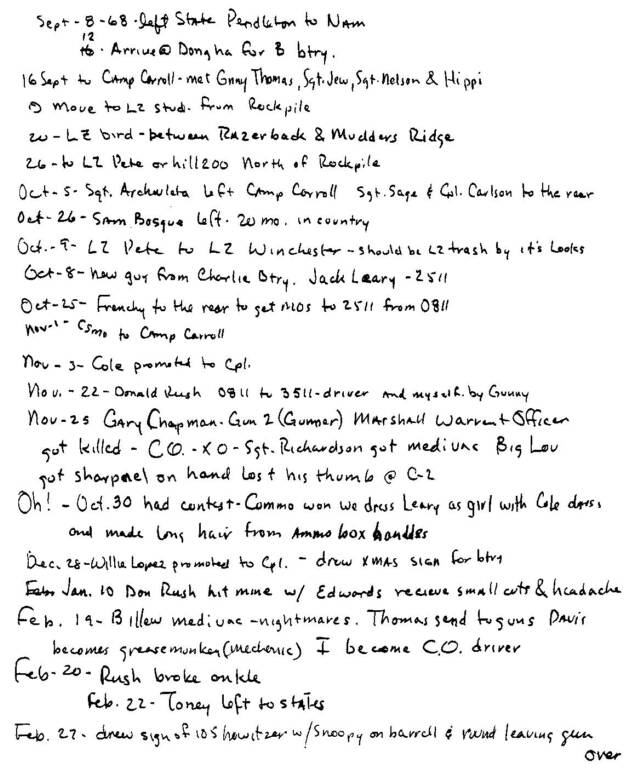 Sept - 8 - 68 - left State Pendleton to Nam
12
16 - Arrive @ Dongha for B btry.
16 Sept to Camp Carroll - met Gnny Thomas, Sgt. Jew, Sgt. Nelson & Hippi
move to LZ stud. from Rockpile
20 - LZ bird - between Razerback & Mudders Ridge
26 - to LZ Pete or hill 200 North of Rockpile
Oct - 5 - Sgt. Archuleta left Camp Carroll Sgt. Sage & Cpl. Carlson to the rear
Oct - 26 - Sam Bosque left - 20 mo. in country
Oct. - 9 - LZ Pete to LZ Winchester - should be LZ trash by it's Looks
Oct - 8 - new guy from Charlie Btry. Jack Leary - 2511
Oct - 25 - Frenchy to the rear to get MOS to 2511 from 0811
Nov - 1 - to Camp Carroll
Nov - 3 - Cole promoted to Cpl.
Nov. - 22 - Donald Rush 0811 to 3511 - driver and myself. by Gunny
Nov - 25 Gary Chapman. Gun 2 (Gunner) Marshall Warrent Officer
got killed - C.O. - XO - Sgt. Richardson got medivac Big Lou
got sharpnel on hand Lost his thumb @ C-2
Oh! - Oct. 30 had contest - Commo won we dress Leary as girl with Cole dress,
and made long hair from Ammo box handles
Dec. 28 - Willie Lopez promoted to Cpl. - drew XMAS sign for btry
Jan. 10 Don Rush hit mine w/ Edwards recieve small cuts & headache
Feb. 19 - Billew medivac - nightmares. Thomas send to guns Davis
becomes greasemonkey (mechanic) I become C.O. driver
Feb - 20 - Rush broke ankle
Feb. 22 - Toney left to states
Feb. 27 - drew sign of 105 howitzer w/ Snoopy on barrell & round leaving gun
over